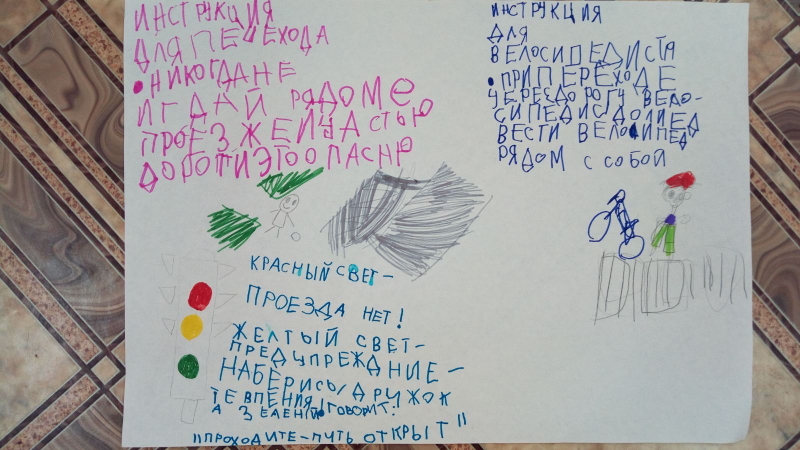 ИНСТРУКЦИЯ
ДЛЯ ПЕЧЕХОДА
• НИКОГДА НЕ
ИГДАЙ РЯДОМ С
ПРОЕЗЖЕЙ ЧАСТЬЮ
ДОРОГИ ЭТО ОПАСНО
ИНСТРУКЦИЯ
ДЛЯ
ВЕЛОСИПЕДИСТА
• ПРИ ПЕРЕХОДЕ
ЧЕРЕЗ ДОРОГУ ВЕЛО-
СИПЕДИС ДОЛЖЕД
ВЕСТИ ВЕЛОСИПЕД
РЯДОМ С СОБОЙ
КРАСНЫЙ СВЕТ-
ПРОЕЗДА НЕТ!
ЖЕЛТЫЙ СВЕТ-
ПРЕДУПРЕЖДАНИЕ-
НАБЕРИСЬ, ДРУЖОК
ТЕВПЕНИЯ!
А ЗЕЛЕНЫЙ ГОВОРИТ:
"ПРОХОДИТЕ-ПУТЬ ОТКРЫТ"